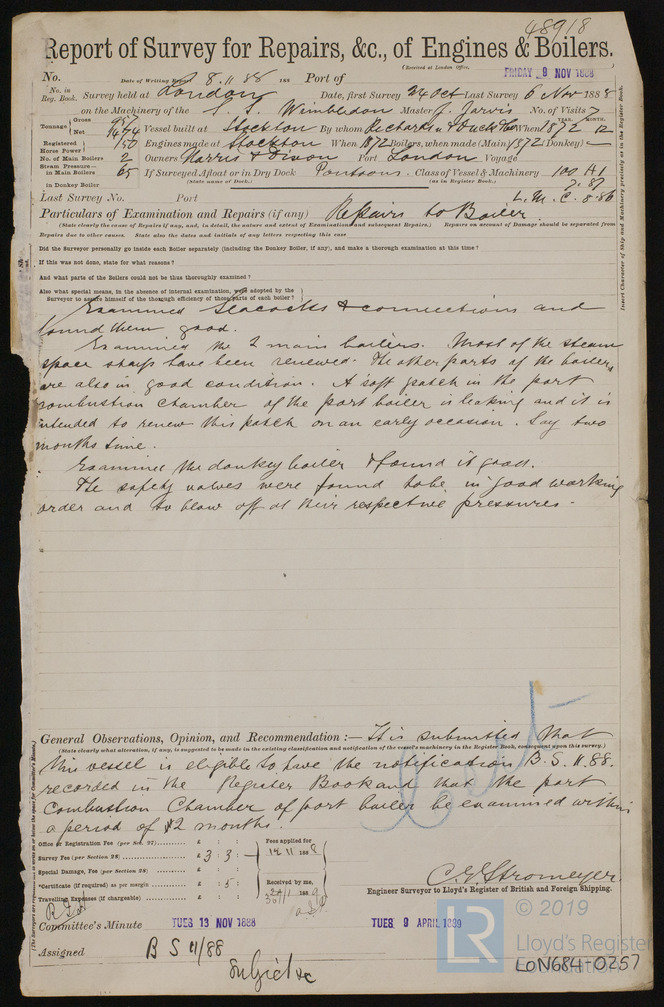 48918
Report of Survey for Repairs, &c., of Engines & Boilers.
(Received at London Office,
FRIDAY 9 NOV 1888
No. Date of Writing Report 8.11.88 188 Port of
No. in Reg. Book. Survey held at London Date, first Survey 24 Oct Last Survey 6 Nov 1888
on the Machinery of the S.S. Wimbledon Master J. Jarvis No. of Visits 7
Tonnage Gross 957 Net
Vessel built at Stockton By whom When 1872 12 YEAR. MONTH.
Registered Horse Power 150 Engines made at Stockton When 1872 Boilers, when made (Main) 1872 (Donkey) —
No. of Main Boilers 2 Owners Harris & Dixon Port London Voyage
Steam Pressure— in Main Boilers 65 If Surveyed Afloat or in Dry Dock Pontoons. Class of Vessel & Machinery 100 A1
(State name of Dock.) (as in Register Book.) 7.87
in Donkey Boiler
Last Survey No. Port L.M.C. 8.86
Particulars of Examination and Repairs (if any) Repairs to Boiler
(State clearly the cause of Repairs if any, and, in detail, the nature and extent of Examination and subsequent Repairs.) Repairs on account of Damage should be separated from
Repairs due to other causes. State also the dates and initials of any letters respecting this case
Did the Surveyor personally go inside each Boiler separately (including the Donkey Boiler, if any), and make a thorough examination at this time?
If this was not done, state for what reasons?
And what parts of the Boilers could not be thoroughly examined?
Also what special means, in the absence of internal examination, were adopted by the
Surveyor to assure himself of the thorough efficiency of those parts of each boiler?
Examined Seacocks & connections and
found them good.
Examined the 2 main boilers. Most of the steam
space stays have been renewed. The other parts of the boilers
are also in good condition. A soft patch in the port
combustion chamber of the port boiler is leaking and it is
intended to renew this patch on an early occasion. Say two
months time.
Examined the donkey boiler & found it good.
The safety valves were found to be in good working
order and to blow off at their respective pressures.
Insert Character of Ship and Machinery precisely as in the Register Book.
General Observations, Opinion, and Recommendation:— It is submitted that
(State clearly what alteration, if any, is suggested to be made in the existing classification and notification of the vessel's machinery in the Register Book, consequent upon this survey.)
this vessel is eligible to have the notification B.S. 11.88.
recorded in the Register Book and that the port
Combustion Chamber of port boiler be examined within
a period of 2 months.
Office or Registration Fee (per Sec. 27) £ : :
Survey Fee (per Section 28) £ 3 : 3 : —
Special Damage, Fee (per Section 28) £ : :
*Certificate (if required) as per margin £ : 5 :
Travelling Expenses (if chargeable) £ : :
Fees applied for
12.11 1888
Received by me,
C.E. Stromeyer
Engineer Surveyor to Lloyd's Register of British and Foreign Shipping.
Committee's Minute TUES 13 NOV 1888 TUES 9 APRIL 1889
Assigned B S 11/88
Subject &c
© 2019
LR
Lloyd's Register
Foundation
LON684-0257